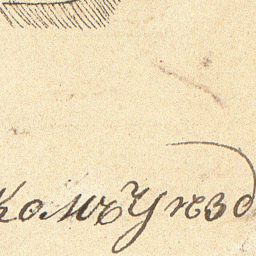 комъ Уѣзд